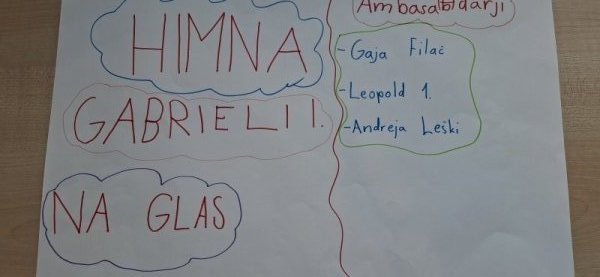 HIMNA
GABRIELI I.
NA GLAS
Ambasadarji
- Gaja Filač
- Leopold 1.
- Andreja Leški